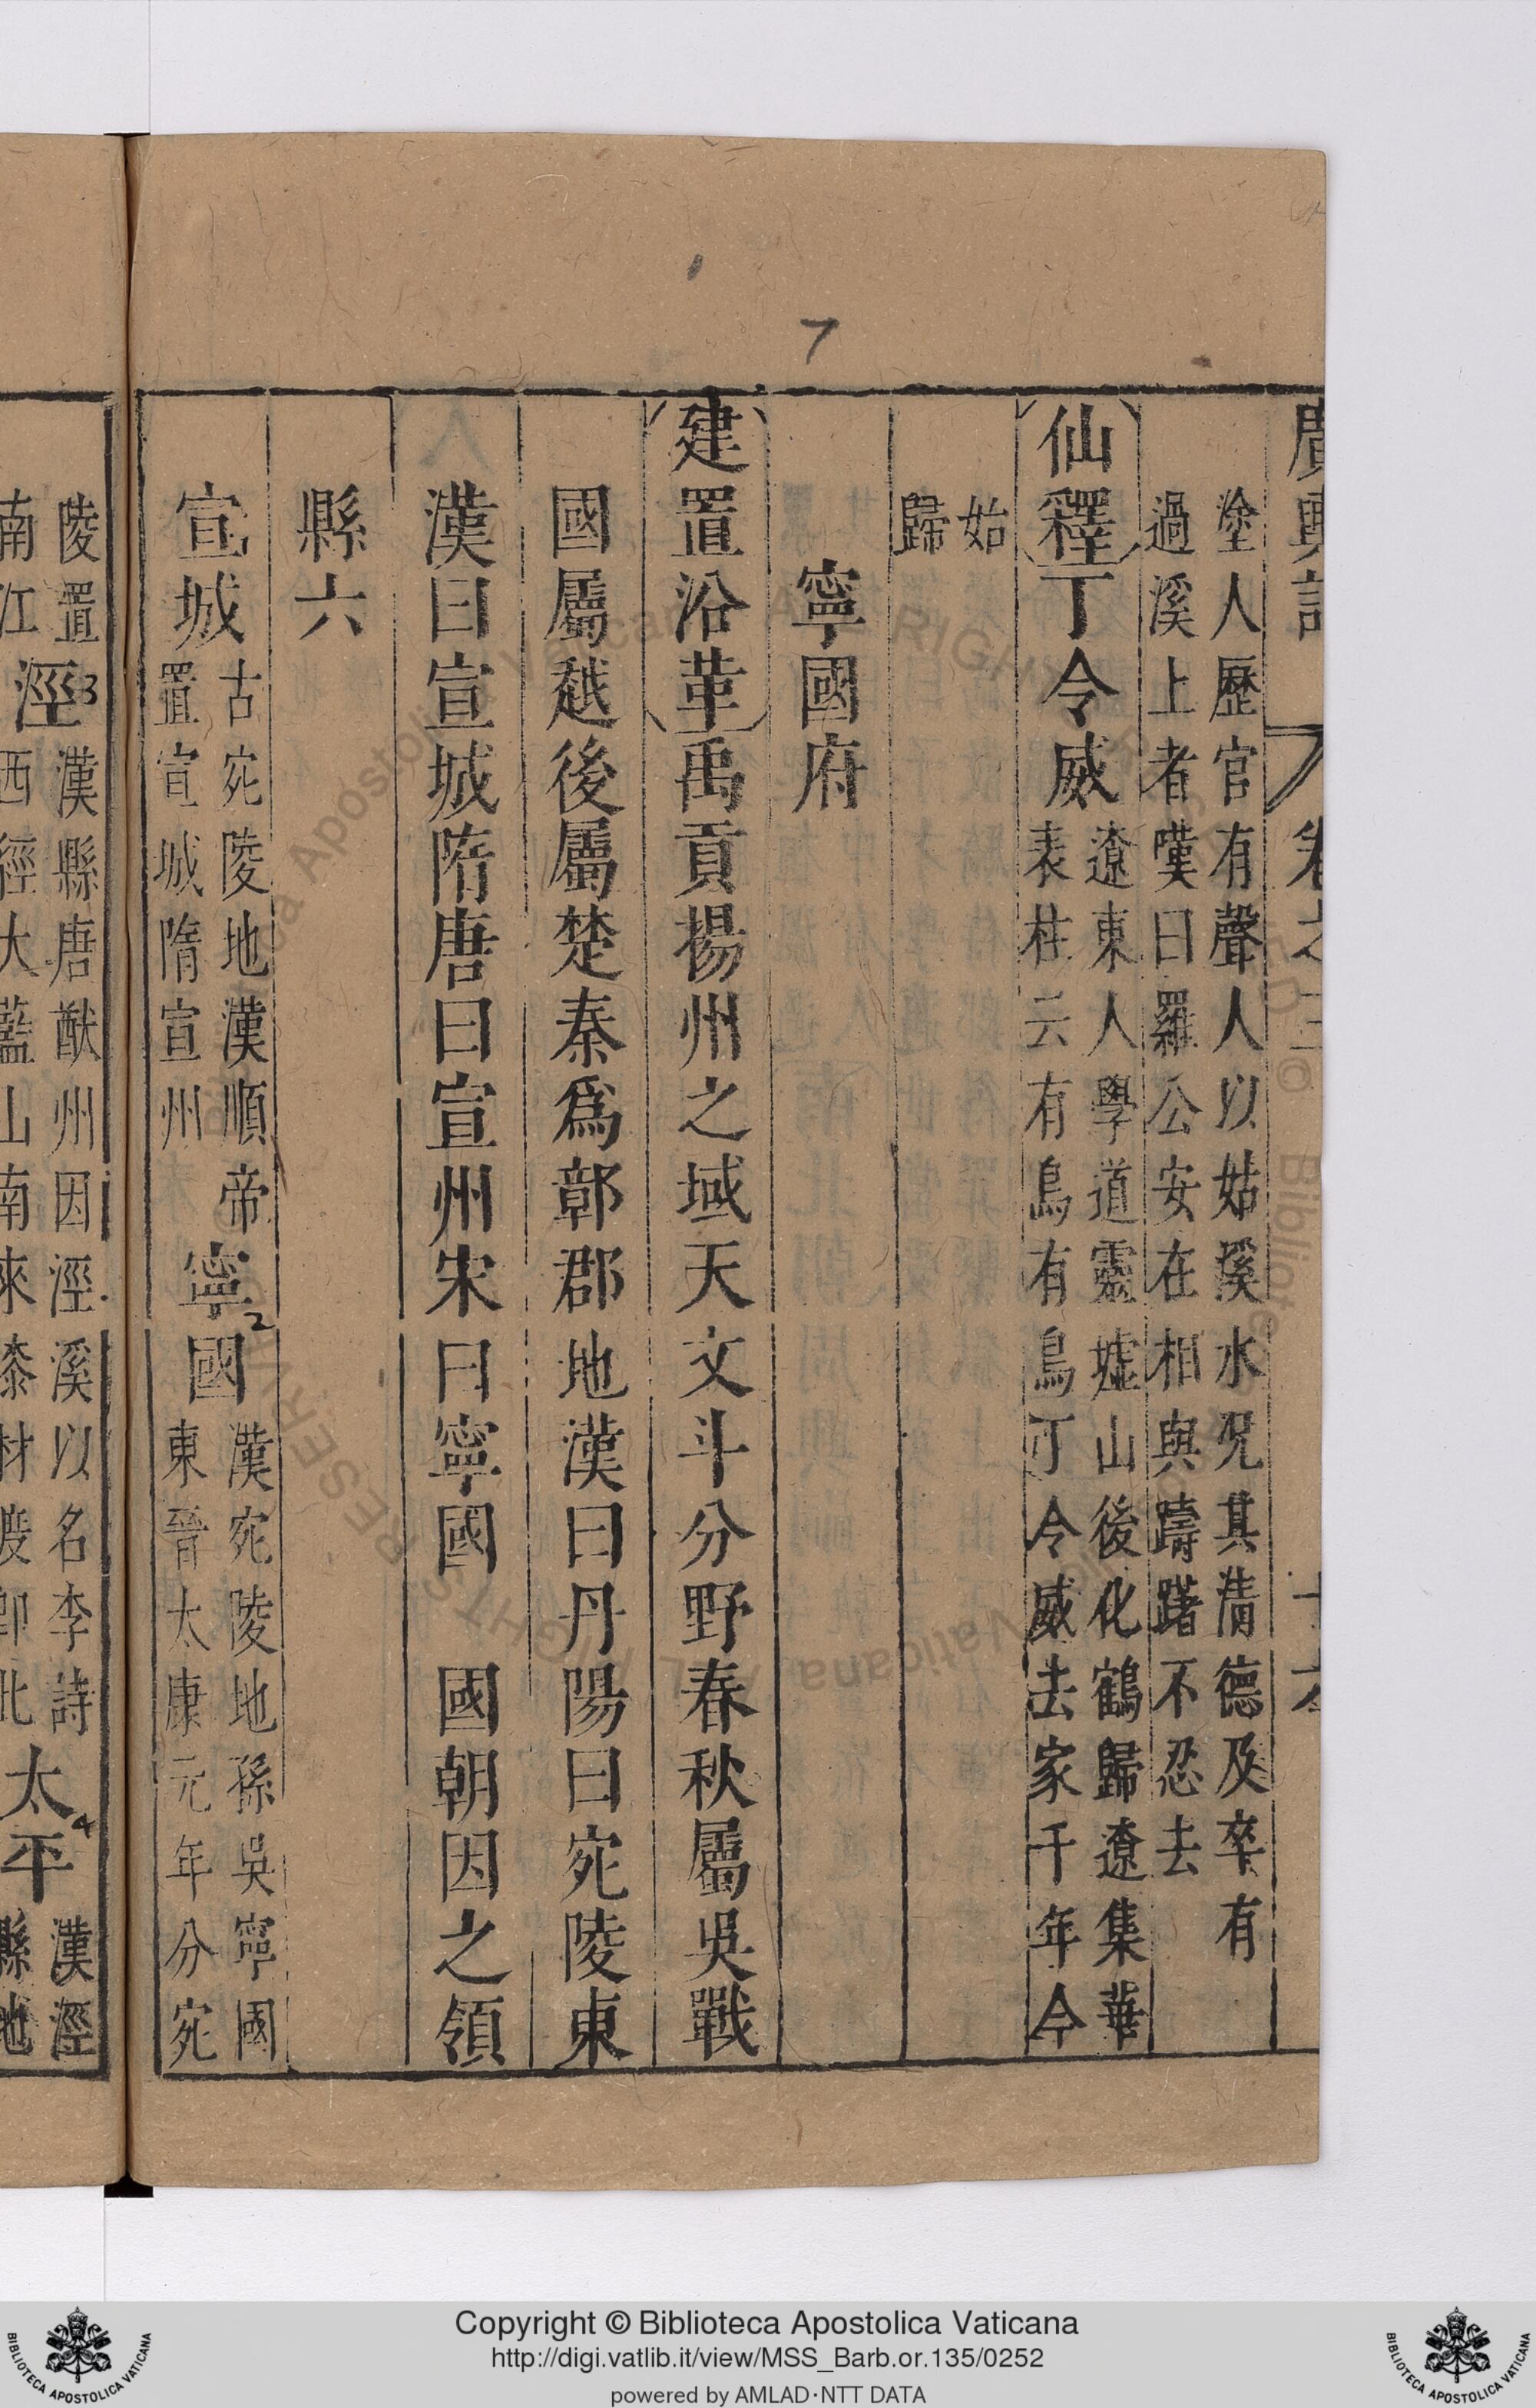 廣輿記 卷之三
塗人歷官有聲人以姑溪水況其清德及卒有
過溪上者嘆曰羅公安在相與躊躇不忍去
仙釋丁令威
遼東人學道靈墟山後化鶴歸遼集華
表柱云有鳥有鳥丁令威去家千年今
始
歸
寧國府
建置沿革禹貢揚州之域天文斗分野春秋屬吳戰
國屬越後屬楚秦爲鄣郡地漢曰丹陽曰宛陵東
漢曰宣城隋唐曰宣州宋曰寧國 國朝因之領
縣六
宣城
古宛陵地漢順帝
置宣城隋宣州
寧國
漢宛陵地孫吳寧國
東晉太康元年分宛
陵置
南江
涇
漢縣唐猷州因涇溪以名李詩
西經大藍山南來漆材度卽此
太平
漢涇
縣地
7
2
3
4
Copyright © Biblioteca Apostolica Vaticana
http://digi.vatlib.it/view/MSS_Barb.or.135/0252
powered by AMLAD·NTT DATA
BIBLIOTECA APOSTOLICA VATICANA
BIBLIOTECA APOSTOLICA VATICANA